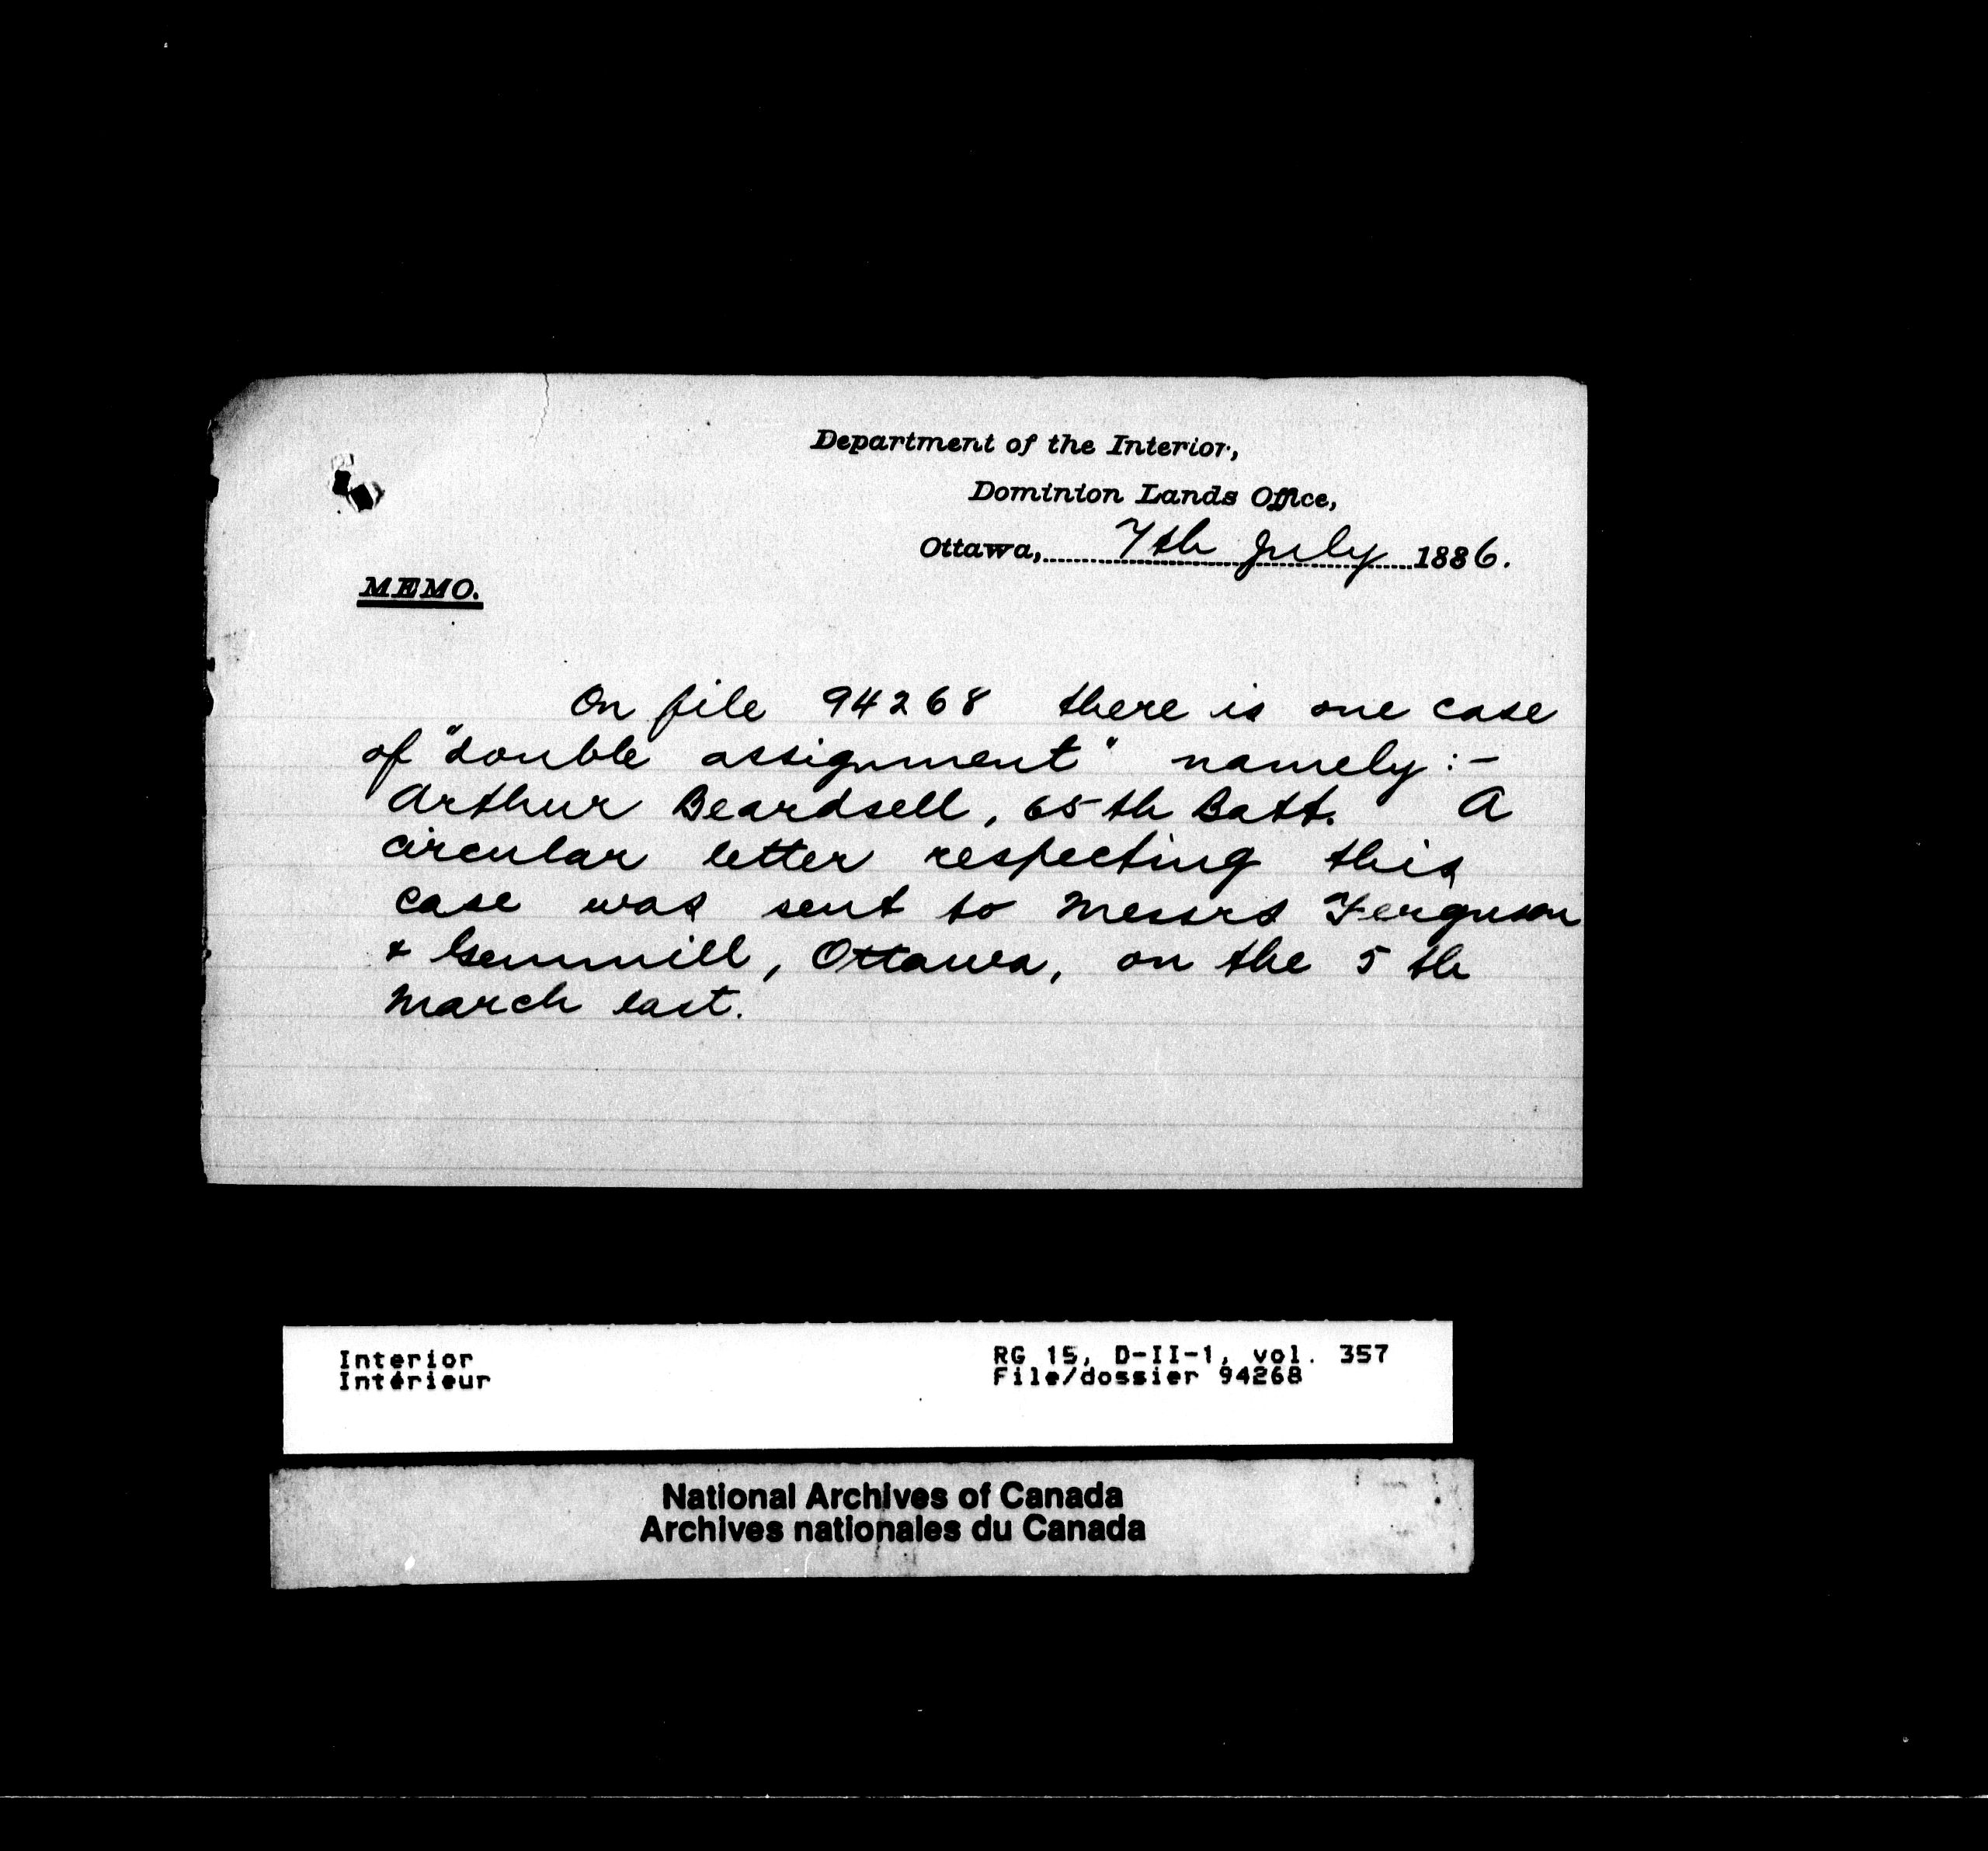 Department of the Interior,
Dominion Lands Office,
Ottawa, 7th July 1886.
MEMO.
On file 94268 there is one case
of "double assignment" namely :-
Arthur Beardsell, 65th Batt. A
circular letter respecting this
case was sent to Messrs Ferguson
& Gemmill, Ottawa, on the 5th
March last.
Interior
Intérieur
RG 15, D-II-1, vol. 357
File/dossier 94268
National Archives of Canada
Archives nationales du Canada